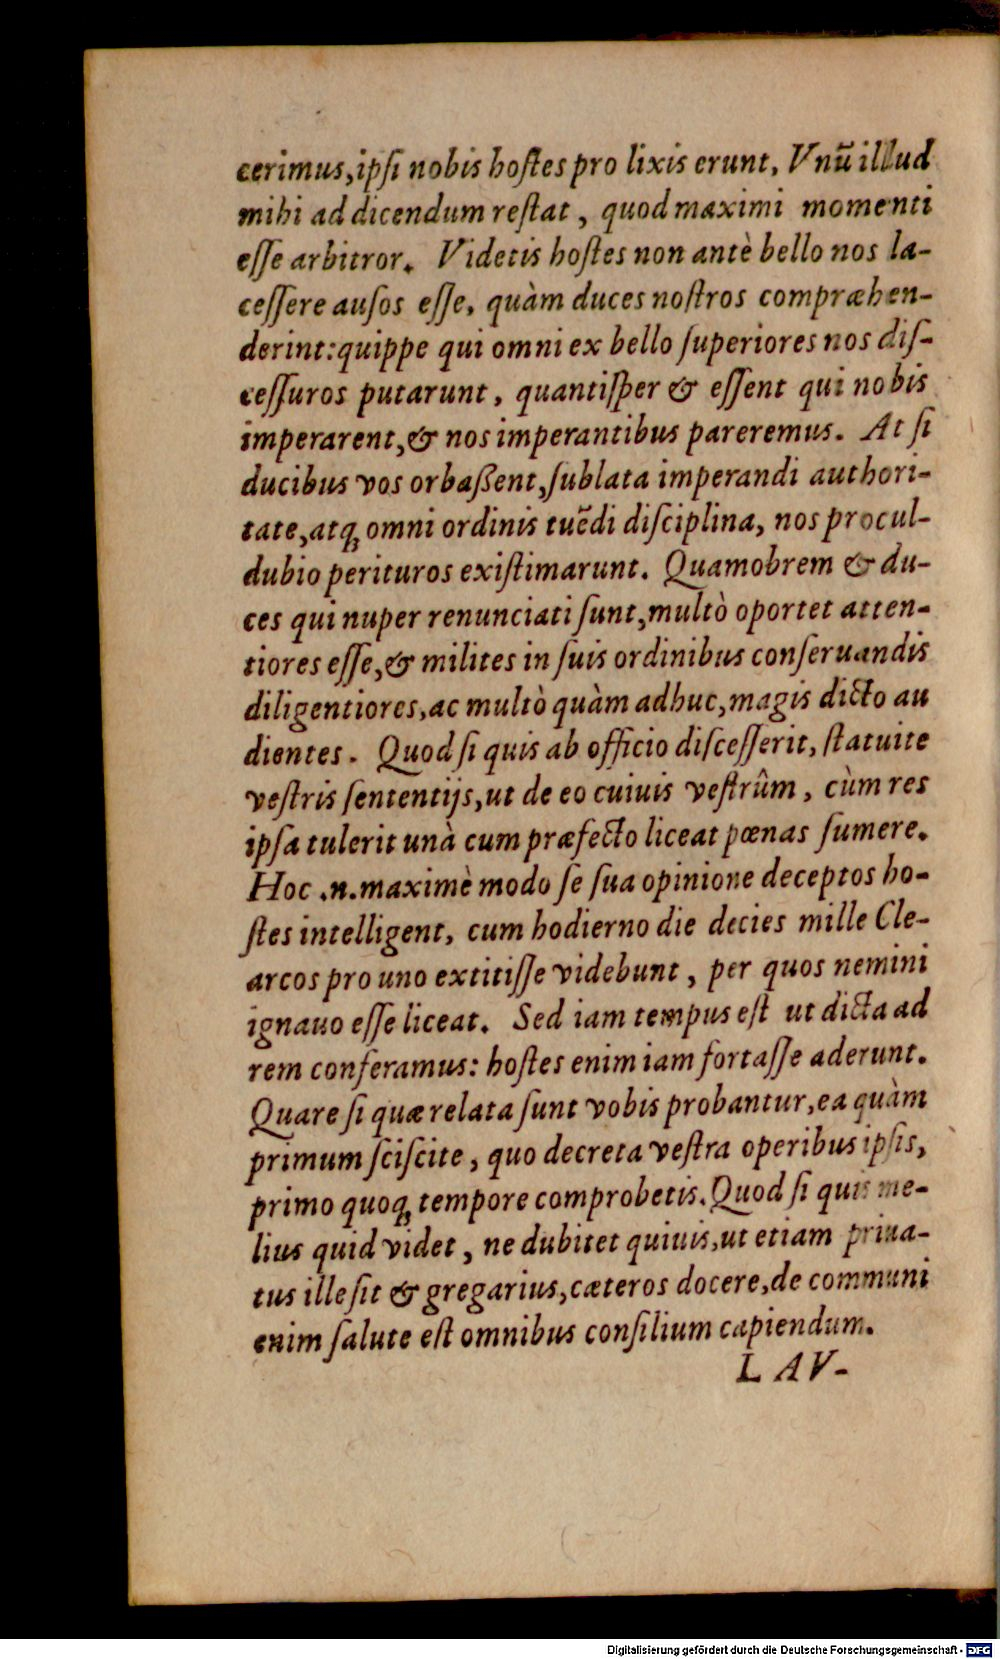 cerimus,ipſi nobis hoſtes pro lixis erunt. Vnũ illud
mihi ad dicendum reſtat, quod maximi momenti
eſſe arbitror. Videtis hoſtes non antè bello nos la-
ceſſere auſos eſſe, quàm duces noſtros compræhen-
derint:quippe qui omni ex bello ſuperiores nos diſ-
ceſſuros putarunt, quantiſper & eſſent qui nobis
imperarent,& nos imperantibus pareremus. At ſi
ducibus vos orbaßent,ſublata imperandi authori-
tate,atq́; omni ordinis tuẽdi diſciplina, nos procul-
dubio perituros exiſtimarunt. Quamobrem & du-
ces qui nuper renunciati ſunt,multò oportet atten-
tiores eſſe,& milites in ſuis ordinibus conſeruandis
diligentiores,ac multò quàm adhuc,magis dicto au
dientes. Quod ſi quis ab officio diſceſſerit, ſtatuite
veſtris ſententijs,ut de eo cuiuis veſtrûm, cùm res
ipſa tulerit unà cum præfecto liceat pœnas ſumere.
Hoc .n.maximè modo ſe ſua opinione deceptos ho-
ſtes intelligent, cum hodierno die decies mille Cle-
arcos pro uno extitiſſe videbunt, per quos nemini
ignauo eſſe liceat. Sed iam tempus eſt ut dicta ad
rem conferamus: hoſtes enim iam fortaſſe aderunt.
Quare ſi quæ relata ſunt vobis probantur,ea quàm
primum ſciſcite, quo decreta veſtra operibus ipſis,
primo quoq; tempore comprobetis.Quod ſi quis me-
lius quid videt, ne dubitet quiuis,ut etiam priua-
tus ille ſit & gregarius,cæteros docere,de communi
enim ſalute eſt omnibus conſilium capiendum.
LAV-
Digitalisierung gefördert durch die Deutsche Forschungsgemeinschaft - DFG